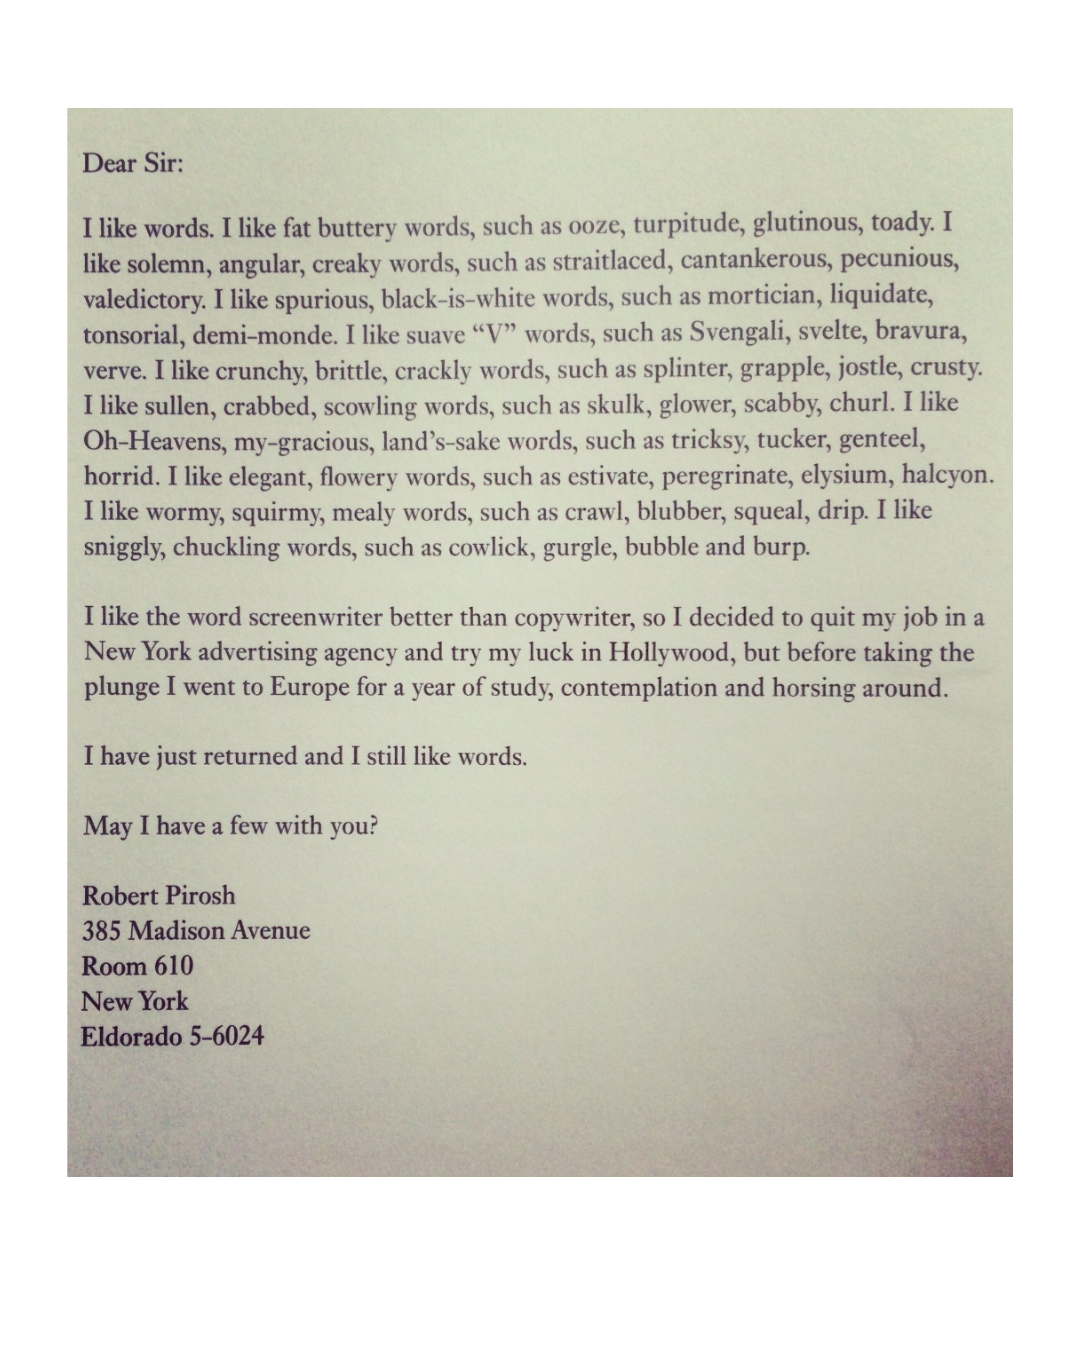 Dear Sir:
I like words. I like fat buttery words, such as ooze, turpitude, glutinous, toady. I
like solemn, angular, creaky words, such as straitlaced, cantankerous, pecunious,
valedictory. I like spurious, black-is-white words, such as mortician, liquidate,
tonsorial, demi-monde. I like suave “V” words, such as Svengali, svelte, bravura,
verve. I like crunchy, brittle, crackly words, such as splinter, grapple, jostle, crusty.
I like sullen, crabbed, scowling words, such as skulk, glower, scabby, churl. I like
Oh-Heavens, my-gracious, land’s-sake words, such as tricksy, tucker, genteel,
horrid. I like elegant, flowery words, such as estivate, peregrinate, elysium, halcyon.
I like wormy, squirmy, mealy words, such as crawl, blubber, squeal, drip. I like
sniggly, chuckling words, such as cowlick, gurgle, bubble and burp.
I like the word screenwriter better than copywriter, so I decided to quit my job in a
New York advertising agency and try my luck in Hollywood, but before taking the
plunge I went to Europe for a year of study, contemplation and horsing around.
I have just returned and I still like words.
May I have a few with you?
Robert Pirosh
385 Madison Avenue
Room 610
New York
Eldorado 5-6024